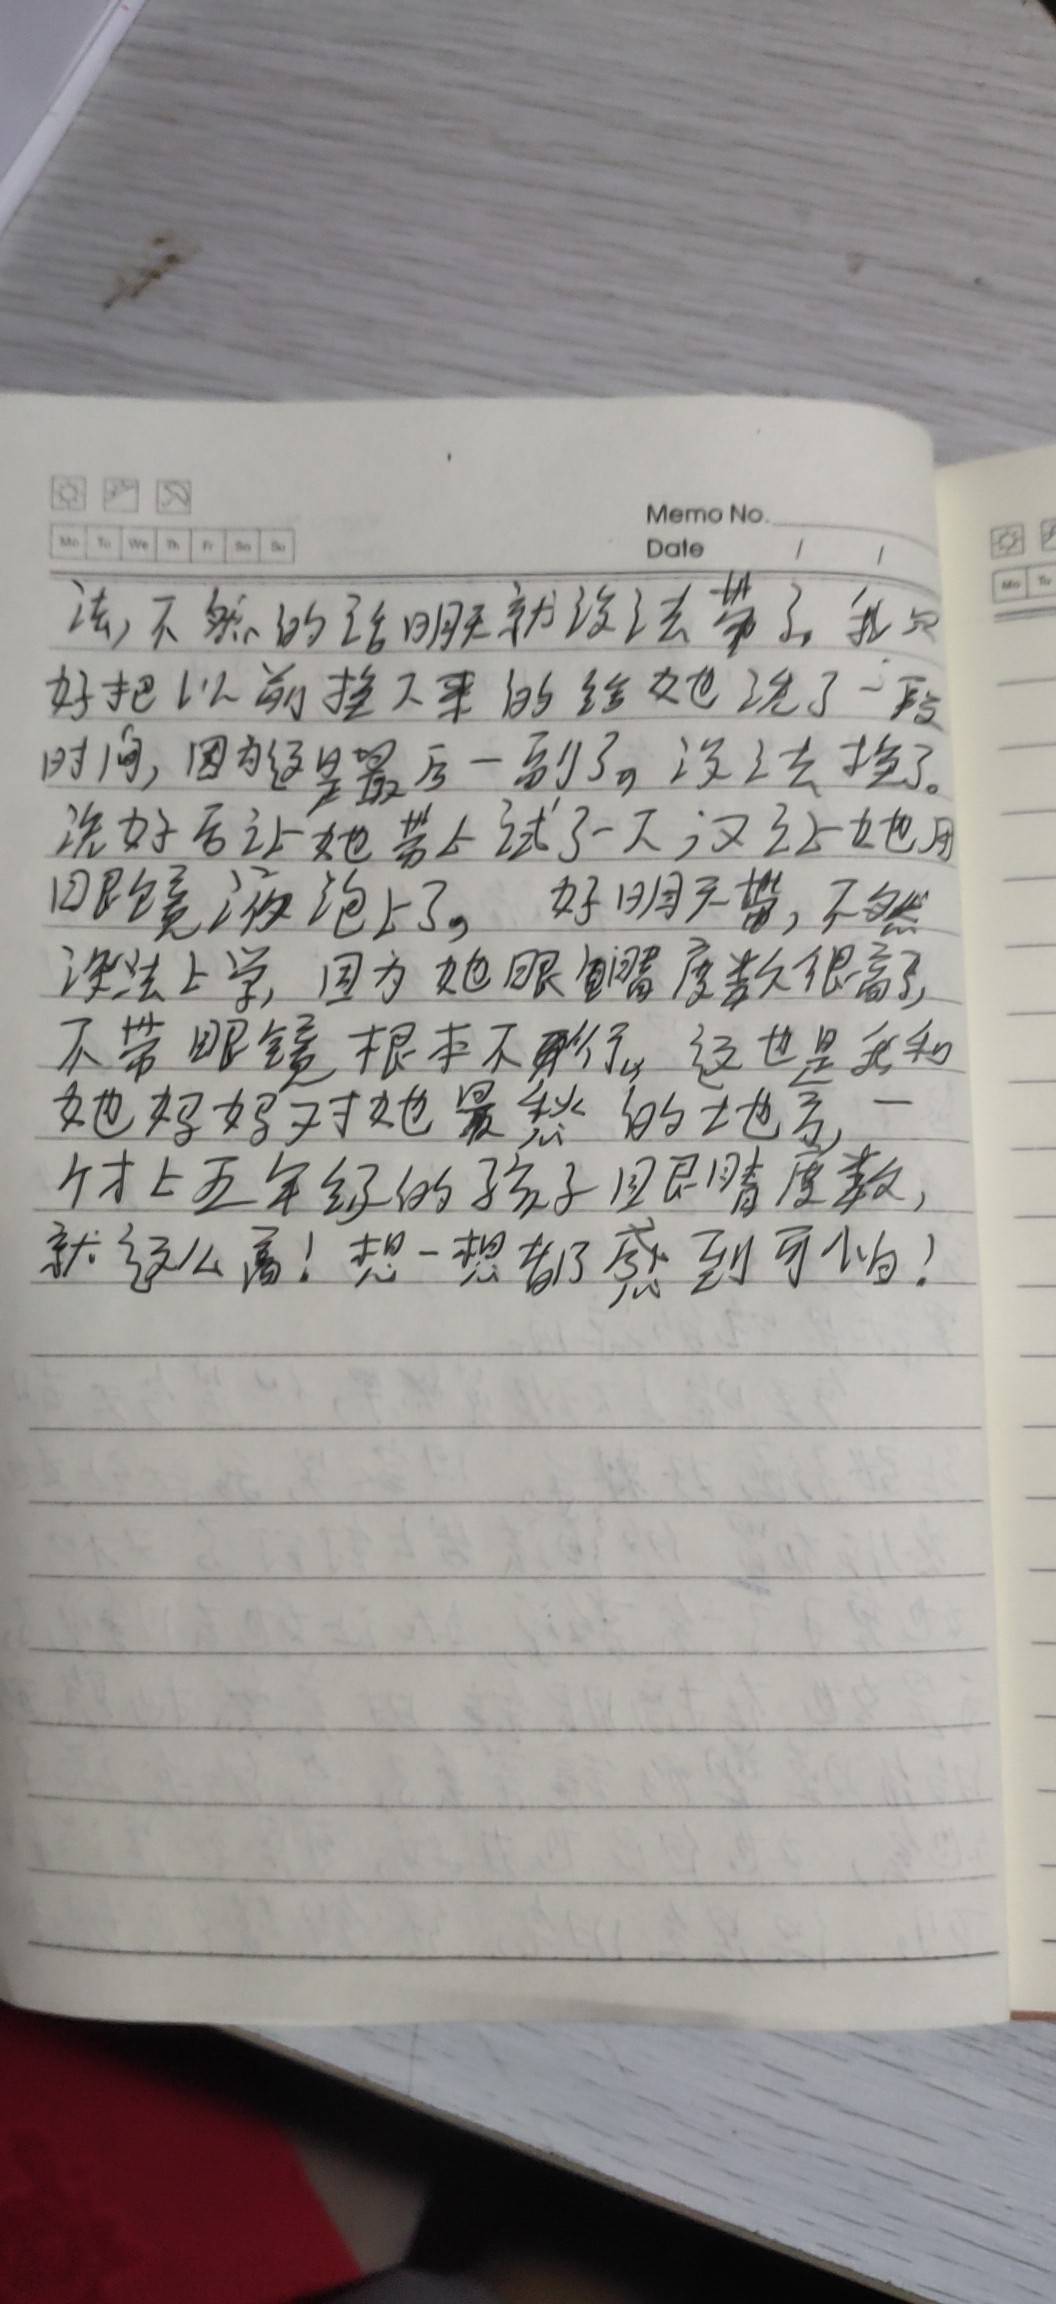 Memo No.
Date / /
Mo Tu We Th Fr Sa Su
法,不然的话明天就没法带了。我只
好把以前换下来的给她洗了一段
时间,因为这是最后一副了。没法换了。
洗好后让她带上试了一下,又让她用
眼镜液泡上了。 好明天带,不然
没法上学,因为她眼睛度数很高了,
不带眼镜根本不行。这也是我和
她妈妈对她最愁的地方,一
个才上五年级的孩子眼睛度数,
就这么高!想一想都感到可怕!
Mo Tu